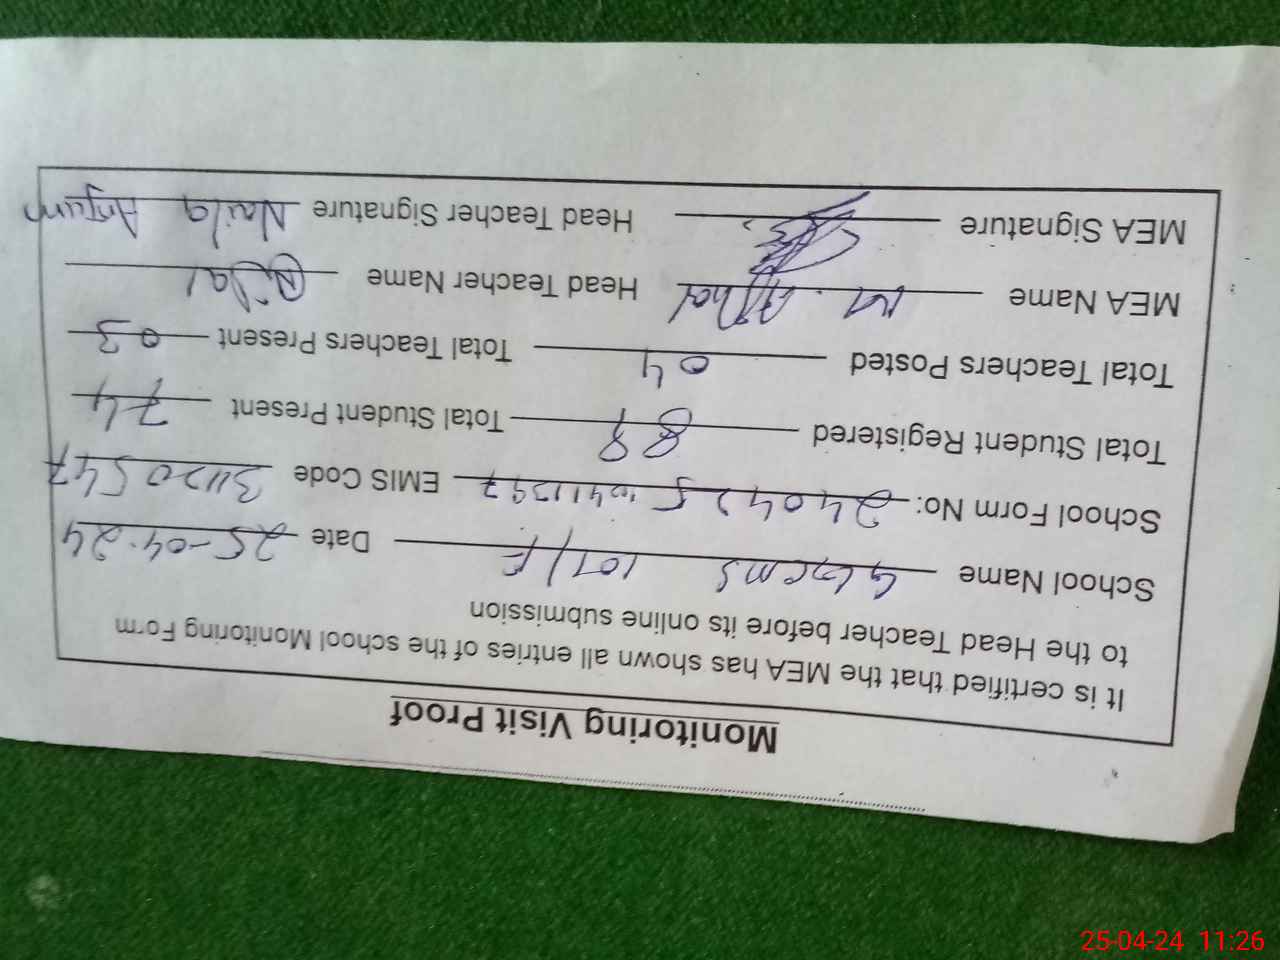 Monitoring Visit Proof
It is certified that the MEA has shown all entries of the school Monitoring Form
to the Head Teacher before its online submission
School Name 107/F Date 25-04-24
School Form No: EMIS Code 31120547
Total Student Registered 88 Total Student Present 74
Total Teachers Posted 04 Total Teachers Present 03
MEA Name M. Afzal Head Teacher Name
MEA Signature Head Teacher Signature Naila Anjum
25-04-24 11:26